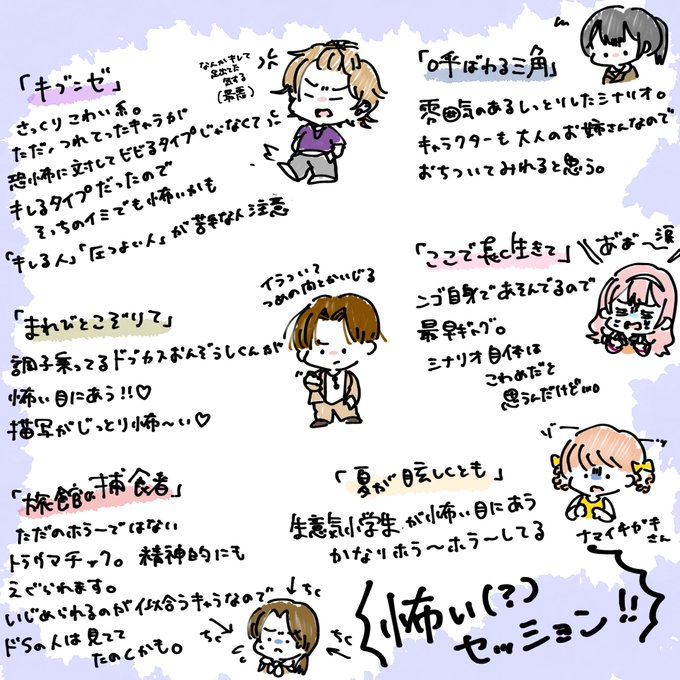 「キブンゼ」
さっくりこわい系。
ただ、つれてったキャラが
恐怖に対してビビるタイプじゃなくて
キレるタイプだったので
そっちのイミでも怖いかも
「キレる人」「圧つよい人」が苦手な人注意
なんかキレて
出てた
気する
(最悪)
「呼ばわる三角」
雰囲気のあるしっとりしたシナリオ。
キャラクターも大人のお姉さんなので
おちついてみれると思う。
「ここで長く生きて」
あ゛あ゛〜涙
ニゴ自身であそんでるので
最早ギャグ。
シナリオ自体は
こわめだと
思うんだけど
「まれびとこぞりて」
調子乗ってるドブカスおんぞうしくんが
怖い目にあう!!♡
描写がじっとり怖〜い♡
イラついて
つめの肉とかいじる
「旅館の捕食者」
ただのホラーではない
トラウマチック。精神的にも
えぐられます。
いじめられるのが似合うキャラなので
ドSの人は見てて
たのしかも。
ちく
ちく
ちく
「夏が眩しくとも」
生意気小学生が怖い目にあう
かなりホラ〜ホラ〜してる
ナマイキガキ
さん
怖い(?)
セッション!!